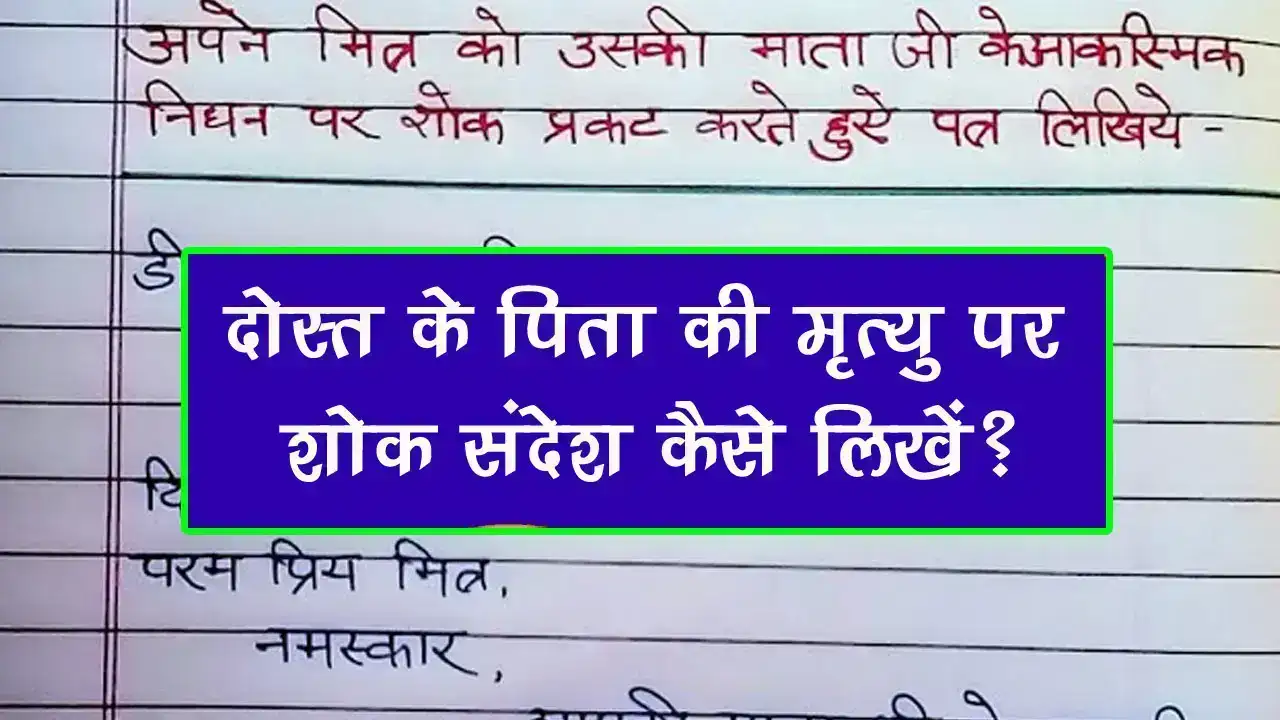 अपने मित्र को उसकी माता जी के आकस्मिक
निधन पर शोक प्रकट करते हुऐ पत्र लिखिये -
दोस्त के पिता की मृत्यु पर
शोक संदेश कैसे लिखें?
परम प्रिय मित्र,
नमस्कार,